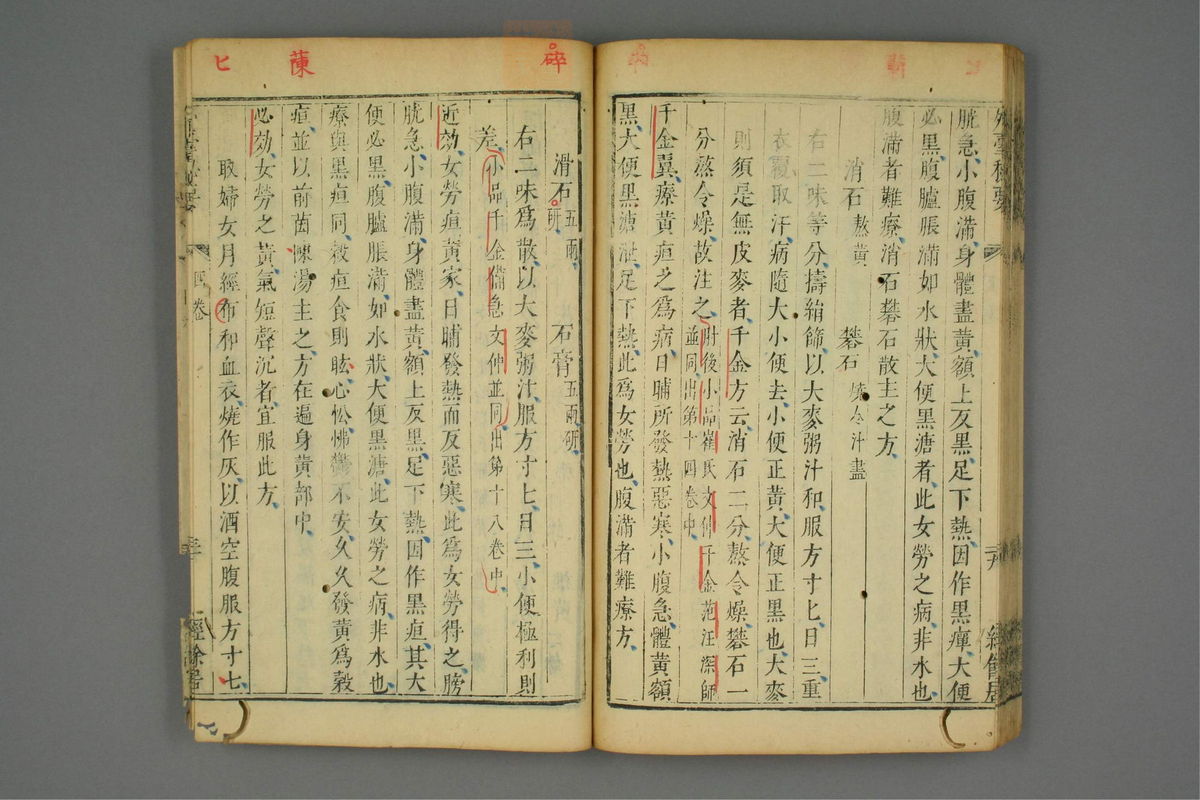 外臺秘要
膀急小腹滿身體盡黃額上反黑足下熱因作黑癉大便
必黑腹臚脹滿如水狀大便黑溏者此女勞之病非水也
腹滿者難療消石礬石散主之方
消石熬黃 礬石燒令汁盡
右二味等分擣絹篩以大麥粥汁和服方寸匕日三重
衣覆取汗病隨大小便去小便正黃大便正黑也大麥
則須是無皮麥者千金方云消石二分熬令燥礬石一
分熬令燥故注之肘後小品崔氏文仲千金范汪深師
並同出第十四卷中
千金翼療黃疸之爲病日晡所發熱惡寒小腹急體黃額
黑大便黑溏泄足下熱此爲女勞也腹滿者難療方
滑石五兩研 石膏五兩研
右二味爲散以大麥粥汁服方寸匕日三小便極利則
差小品千金備急文仲並同出第十八卷中
近効女勞疸黃家日晡發熱而反惡寒此爲女勞得之膀
胱急小腹滿身體盡黃額上反黑足下熱因作黑疸其大
便必黑腹臚脹滿如水狀大便黑溏此女勞之病非水也
療與黑疸同穀疸食則眩心忪怫鬱不安久久發黃爲穀
疸並以前茵蔯湯主之方在遍身黃部中
必効女勞之黃氣短聲沉者宜服此方
取婦女月經布和血衣燒作灰以酒空腹服方寸七
四卷
經餘居
碎
蔯
匕